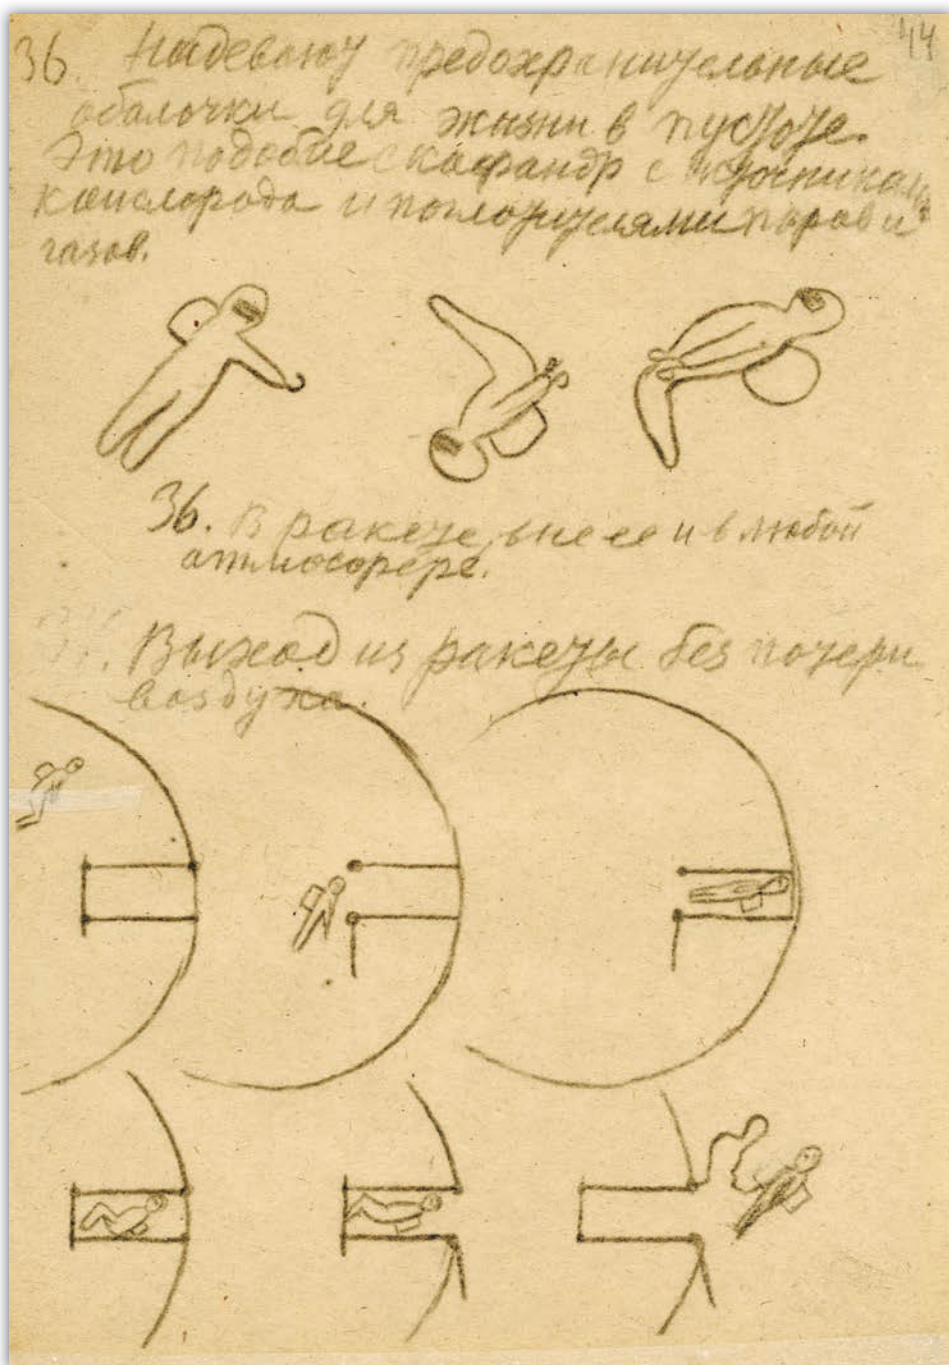 44
36. Надевают предохранительные
оболочки для жизни в пустоте.
Это подобие скафандр с источниками
кислорода и поглотителями паров и
газов.
36. В ракете, вне ее и в любой
атмосфере.
Выход из ракеты без потери
воздуха.